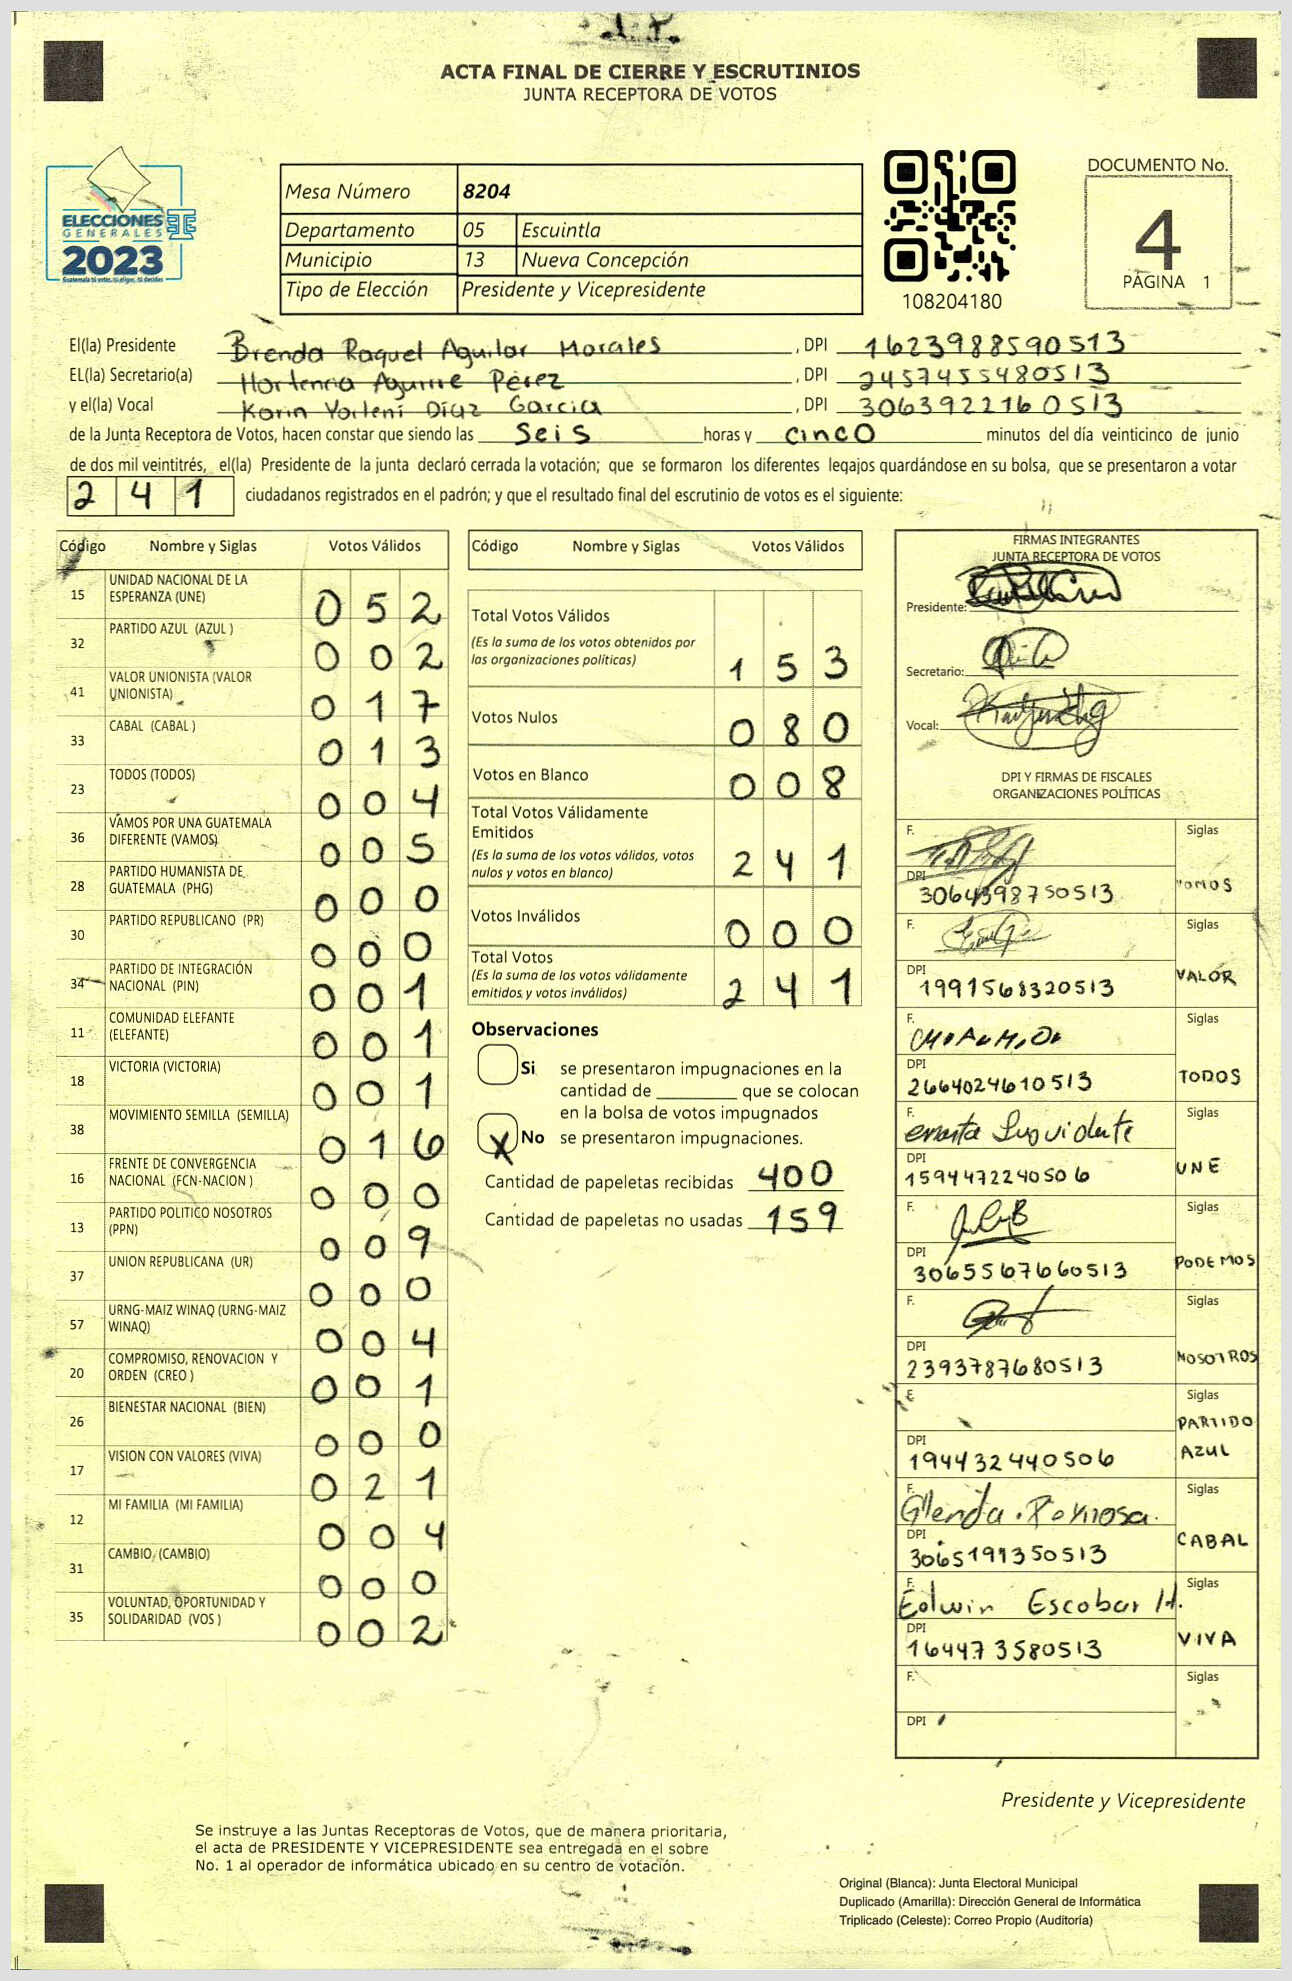 ACTA FINAL DE CIERRE Y ESCRUTINIOS
JUNTA RECEPTORA DE VOTOS
ELECCIONES
GENERALES
2023
Guatemala tú votas, tú eliges, tú decides
Mesa Número 8204
Departamento 05 Escuintla
Municipio 13 Nueva Concepción
Tipo de Elección Presidente y Vicepresidente
108204180
DOCUMENTO No.
4
PÁGINA 1
El(la) Presidente Brenda Raquel Aguilar Morales , DPI 1623988590513
EL(la) Secretario(a) Hortencia Aguirre Pérez , DPI 2457455480513
y el(la) Vocal Karin Yorleni Díaz García , DPI 3063922160513
de la Junta Receptora de Votos, hacen constar que siendo las Seis horas y cinco minutos del día veinticinco de junio
de dos mil veintitrés, el(la) Presidente de la junta declaró cerrada la votación; que se formaron los diferentes legajos quardándose en su bolsa, que se presentaron a votar
241 ciudadanos registrados en el padrón; y que el resultado final del escrutinio de votos es el siguiente:
Código Nombre y Siglas Votos Válidos
15 UNIDAD NACIONAL DE LA ESPERANZA (UNE) 052
32 PARTIDO AZUL (AZUL ) 002
41 VALOR UNIONISTA (VALOR UNIONISTA) 017
33 CABAL (CABAL ) 013
23 TODOS (TODOS) 004
36 VAMOS POR UNA GUATEMALA DIFERENTE (VAMOS) 005
28 PARTIDO HUMANISTA DE GUATEMALA (PHG) 000
30 PARTIDO REPUBLICANO (PR) 000
34 PARTIDO DE INTEGRACIÓN NACIONAL (PIN) 001
11 COMUNIDAD ELEFANTE (ELEFANTE) 001
18 VICTORIA (VICTORIA) 001
38 MOVIMIENTO SEMILLA (SEMILLA) 016
16 FRENTE DE CONVERGENCIA NACIONAL (FCN-NACION ) 000
13 PARTIDO POLITICO NOSOTROS (PPN) 009
37 UNION REPUBLICANA (UR) 000
57 URNG-MAIZ WINAQ (URNG-MAIZ WINAQ) 004
20 COMPROMISO, RENOVACION Y ORDEN (CREO ) 001
26 BIENESTAR NACIONAL (BIEN) 000
17 VISION CON VALORES (VIVA) 021
12 MI FAMILIA (MI FAMILIA) 004
31 CAMBIO (CAMBIO) 000
35 VOLUNTAD, OPORTUNIDAD Y SOLIDARIDAD (VOS ) 002
Código Nombre y Siglas Votos Válidos
Total Votos Válidos
(Es la suma de los votos obtenidos por
las organizaciones políticas) 153
Votos Nulos 080
Votos en Blanco 008
Total Votos Válidamente
Emitidos
(Es la suma de los votos válidos, votos
nulos y votos en blanco) 241
Votos Inválidos 000
Total Votos
(Es la suma de los votos válidamente
emitidos y votos inválidos) 241
Observaciones
Si se presentaron impugnaciones en la
cantidad de ________ que se colocan
en la bolsa de votos impugnados
X No se presentaron impugnaciones.
Cantidad de papeletas recibidas 400
Cantidad de papeletas no usadas 159
FIRMAS INTEGRANTES
JUNTA RECEPTORA DE VOTOS
Presidente:
Secretario:
Vocal:
DPI Y FIRMAS DE FISCALES
ORGANIZACIONES POLÍTICAS
F. Siglas
DPI 3064398750513 VAMOS
F. Siglas
DPI 1991568320513 VALOR
F. Siglas
DPI 2664024610513 TODOS
F. Siglas
DPI 1594472240506 UNE
F. Siglas
DPI 3065567660513 PODEMOS
F. Siglas
DPI 2393787680513 NOSOTROS
F. Siglas
DPI 1944432440506 PARTIDO AZUL
F. Glenda Siglas
DPI 3065191350513 CABAL
F. Edwin Escobar H. Siglas
DPI 1644773580513 VIVA
F. Siglas
DPI
Presidente y Vicepresidente
Se instruye a las Juntas Receptoras de Votos, que de manera prioritaria,
el acta de PRESIDENTE Y VICEPRESIDENTE sea entregada en el sobre
No. 1 al operador de informática ubicado en su centro de votación.
Original (Blanca): Junta Electoral Municipal
Duplicado (Amarilla): Dirección General de Informática
Triplicado (Celeste): Correo Propio (Auditoría)